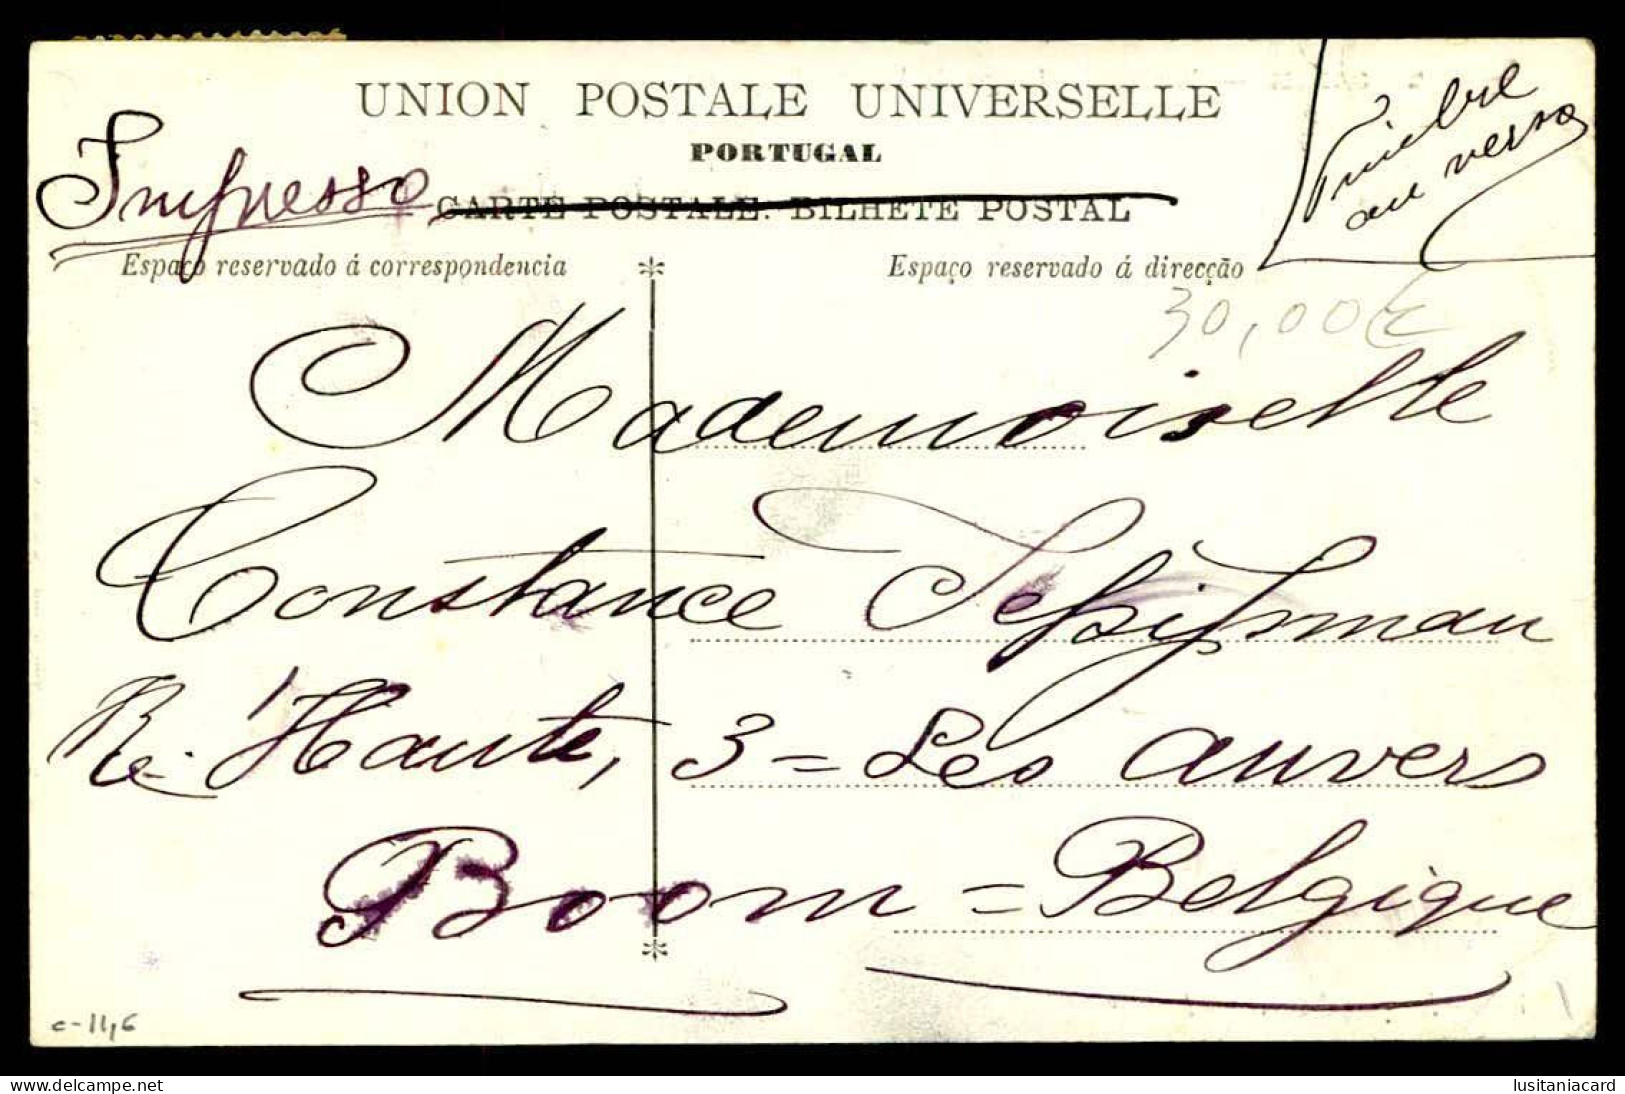 UNION POSTALE UNIVERSELLE
PORTUGAL
Impresso
CARTE POSTALE. BILHETE POSTAL
Timbre
au verso
Espaço reservado á correspondencia
Espaço reservado á direcção
30,00€
Mademoiselle
Constance
Re. Haute, 3 = Les anvers
Boom = Belgique
c-11,6
delcampe.net
lusitaniacard